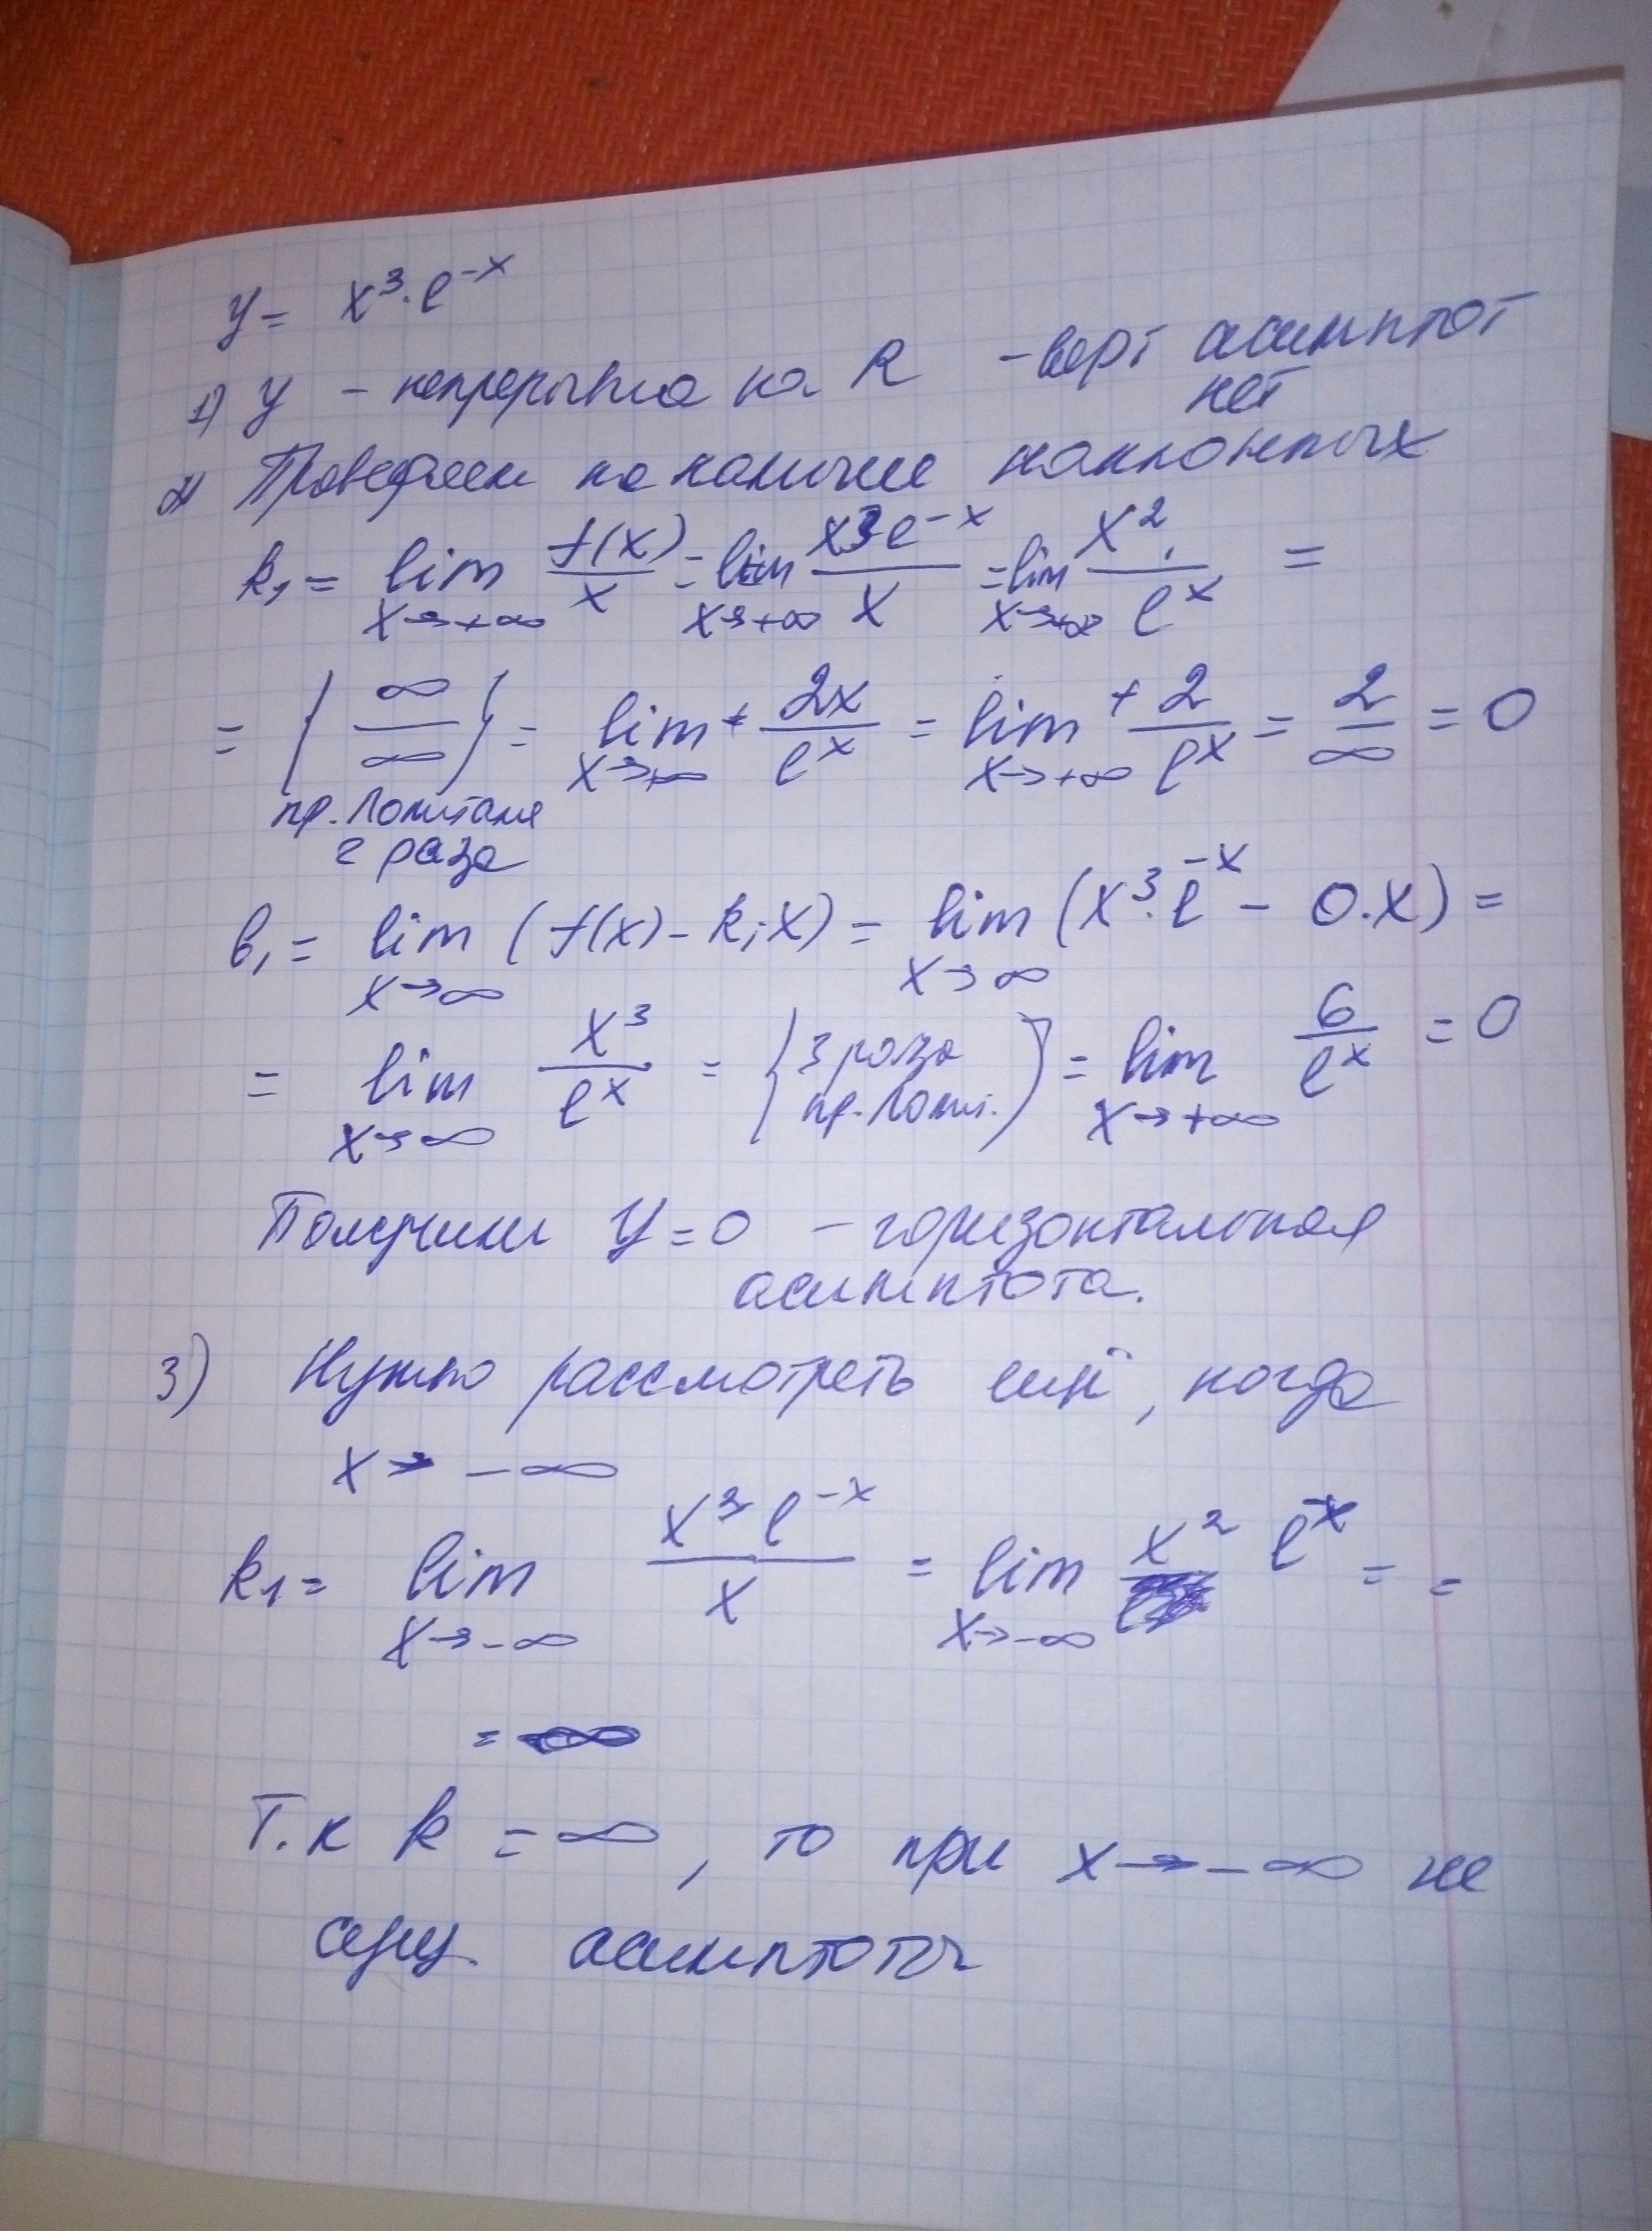 y = x³·e⁻ˣ
1) y – непрерывна на R – верт асимптот
нет
2) Проверяем на наличие наклонных
k₁ = lim x→+∞ f(x)/x = lim x→+∞ x³e⁻ˣ/x = lim x→+∞ x²/eˣ =
= {∞/∞} = lim x→+∞ + 2x/eˣ = lim x→+∞ + 2/eˣ = 2/∞ = 0
пр. Лопиталя
2 раза
b₁ = lim x→∞ (f(x) – k₁x) = lim x→∞ (x³·e⁻ˣ – 0·x) =
= lim x→∞ x³/eˣ = {3 раза пр. Лопит.} = lim x→+∞ 6/eˣ = 0
Получили y = 0 – горизонтальная
асимптота.
3) Нужно рассмотреть ещё, когда
x → –∞
k₁ = lim x→–∞ x³e⁻ˣ/x = lim x→–∞ x² e⁻ˣ = =
= ∞
Т.к k = ∞, то при x → –∞ не
сущ. асимптоты